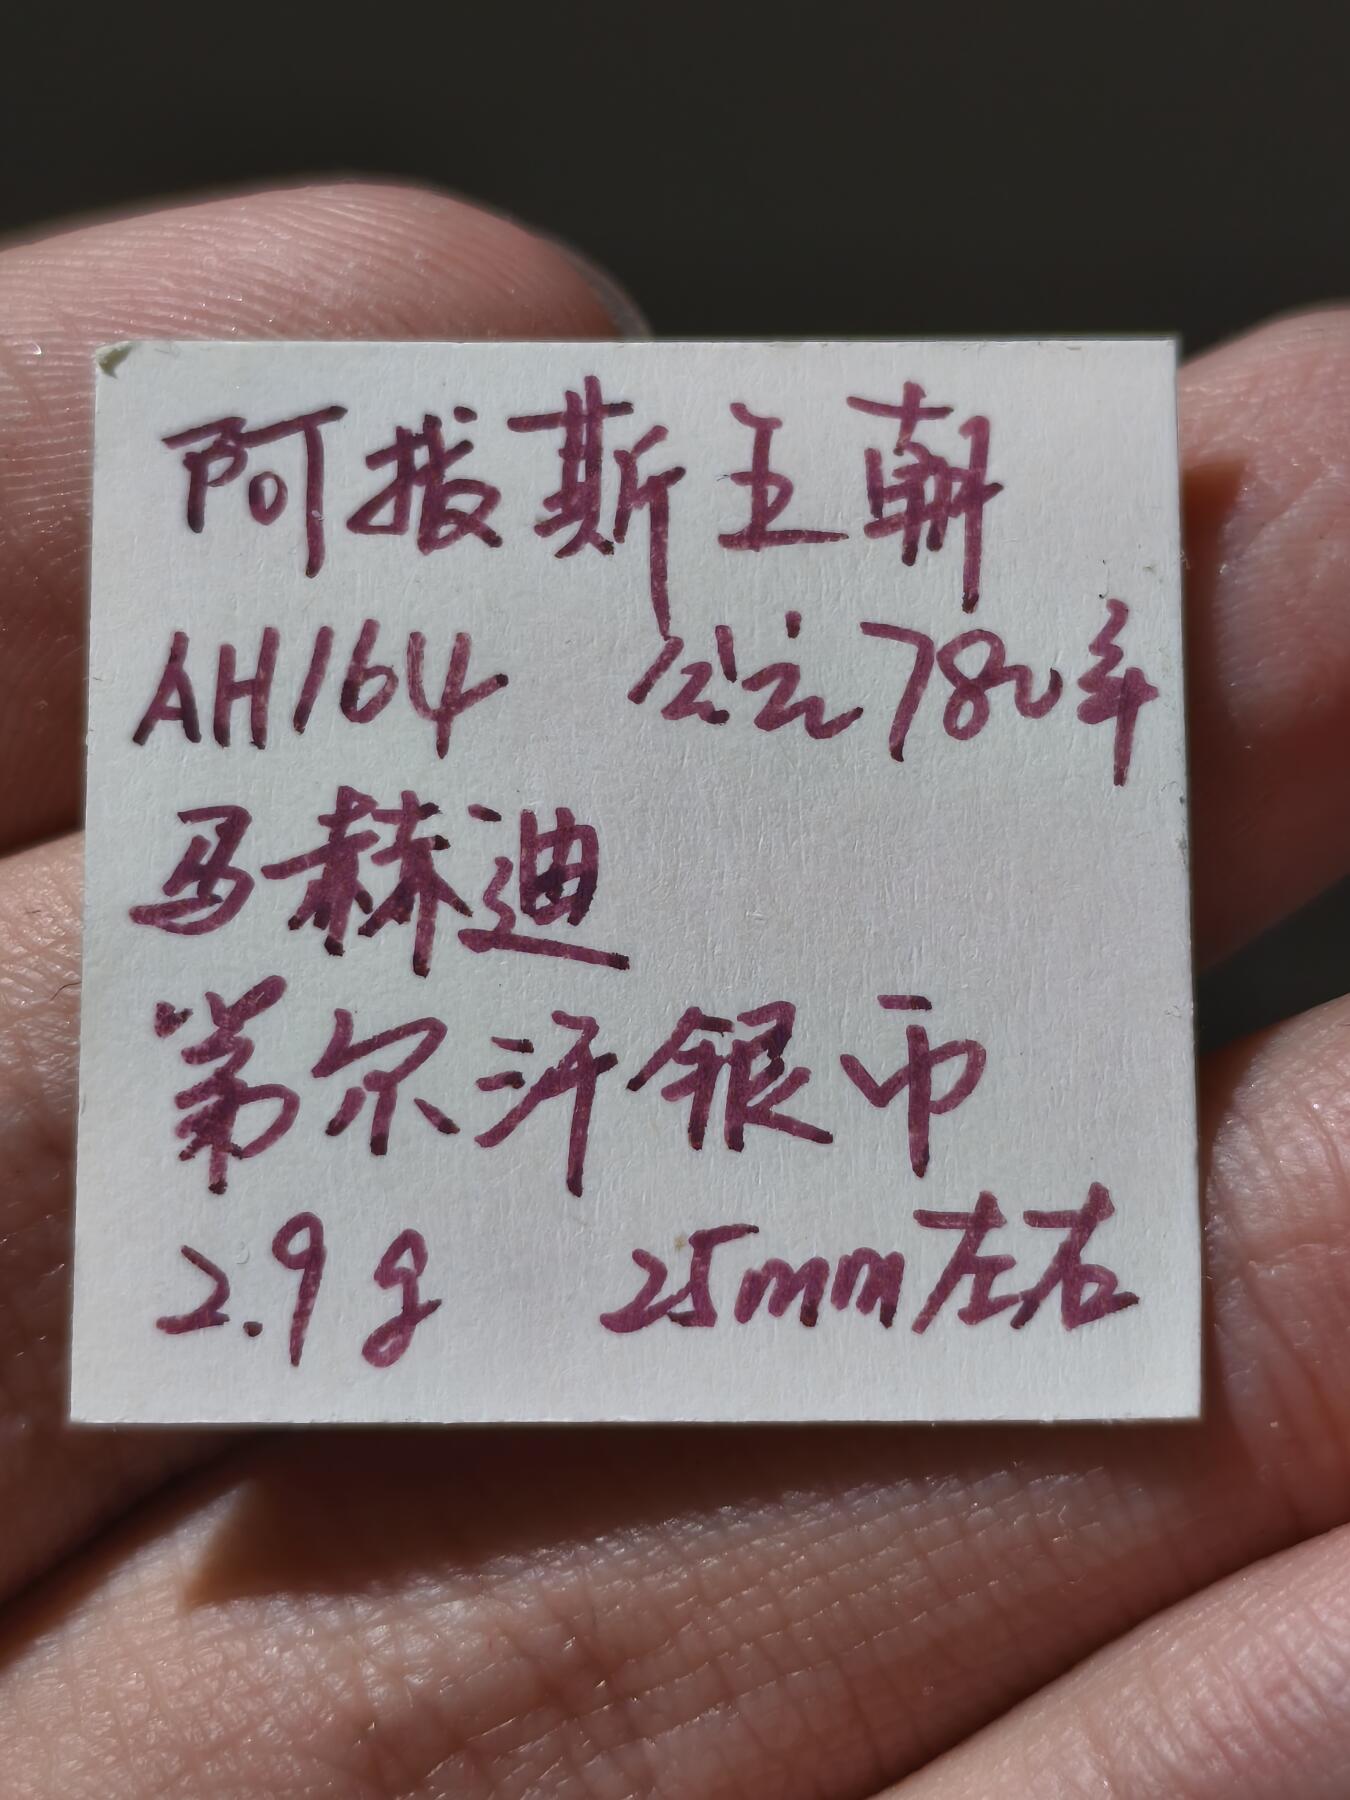 阿拔斯王朝
AH164 公元780年
马赫迪
第尔汗银币
2.9g 25mm左右